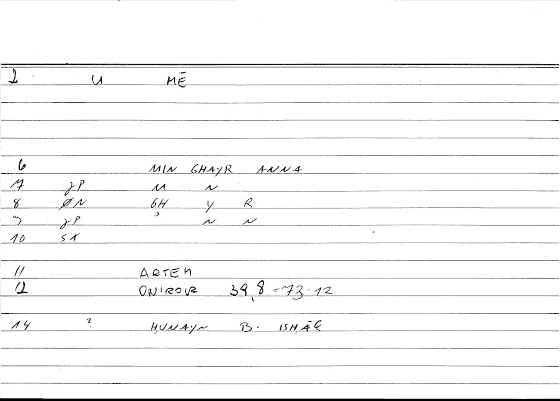 1 U MĒ
6 MIN GHAYR ANNA
7 JP M N
8 ØN GH Y R
9 JP ? N N
10 SK
11 ARTEM
12 ONIROCR 39,8 - 73.12
14 ? HUNAYN B. ISHĀQ